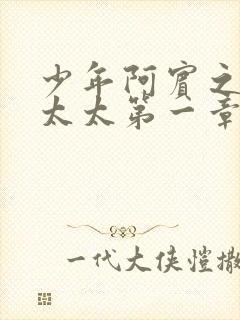 少年阿賓之
太太第一章
一代大俠愷撒